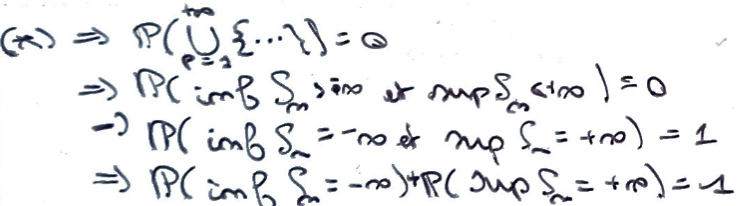 (*) ⇒ ℙ(⋃_{p=1}^{+∞} {...}) = 0
⇒ ℙ(inf S_n > -∞ et sup S_n < +∞) = 0
→ ℙ(inf S_n = -∞ et sup S_n = +∞) = 1
⇒ ℙ(inf S_n = -∞) + ℙ(sup S_n = +∞) = 1